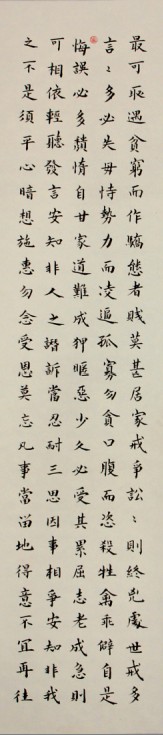 最可恥遇貧窮而作驕態者賤莫甚居家戒爭訟〻則終兇處世戒多
言〻多必失毋恃勢力而凌逼孤寡勿貪口腹而恣殺牲禽乖僻自是
悔誤必多頹惰自甘家道難成狎暱惡少久必受其累屈志老成急則
可相依輕聽發言安知非人之譖訴當忍耐三思因事相爭安知非我
之不是須平心暗想施惠勿念受恩莫忘凡事當留地得意不宜再往